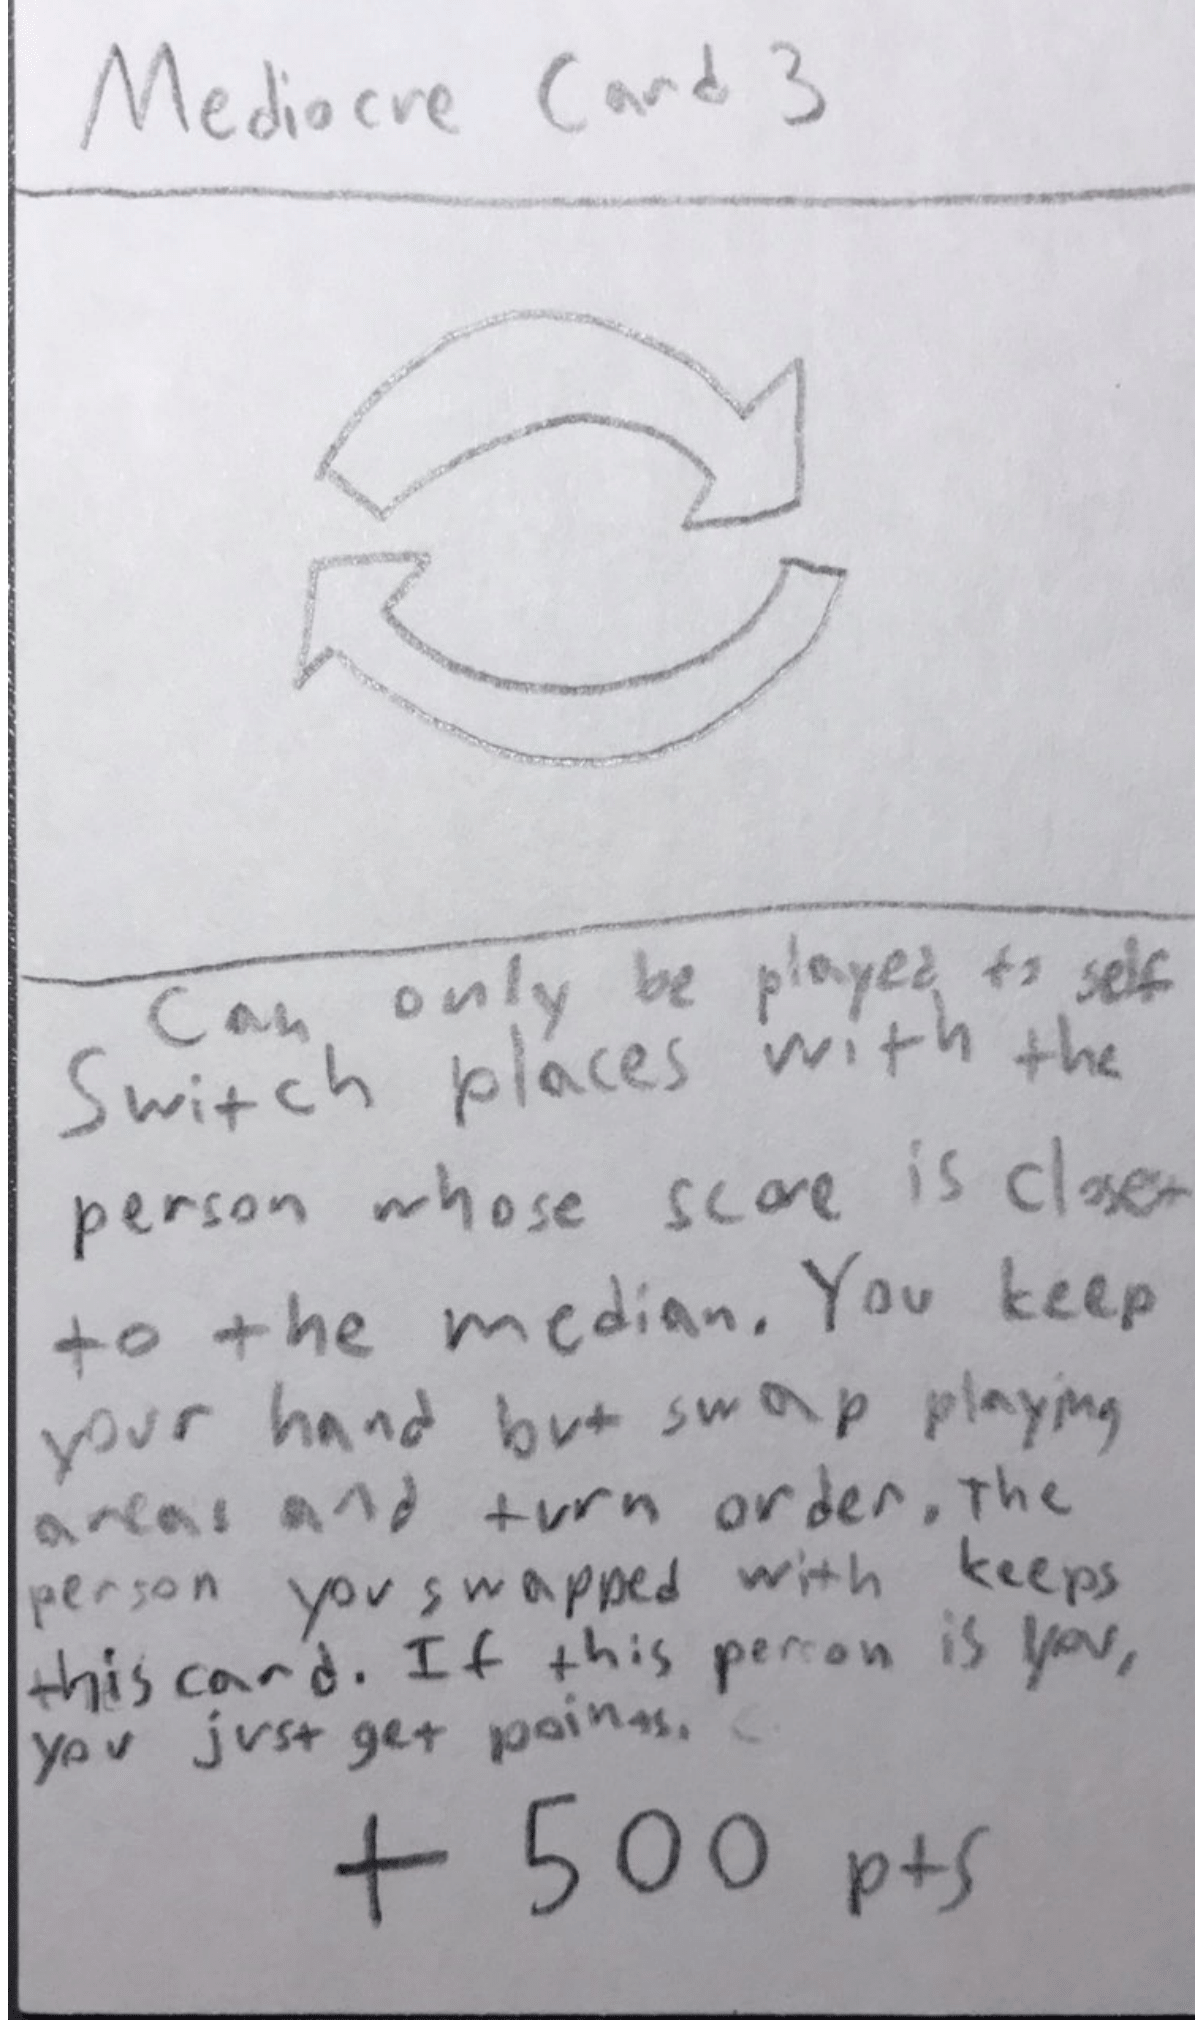 Mediocre Card 3
Can only be played to self
Switch places with the
person whose score is closest
to the median. You keep
your hand but swap playing
areas and turn order. The
person you swapped with keeps
this card. If this person is you,
you just get points.
+ 500 pts